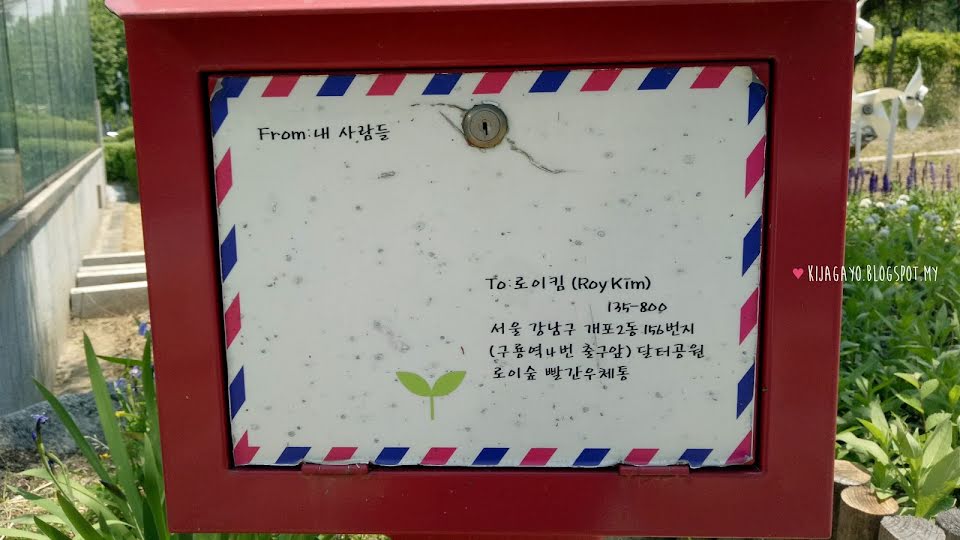 From:내 사람들
To:로이킴 (Roy Kim)
135-800
서울 강남구 개포2동 156번지
(구룡역 4번 출구앞) 달터공원
로이숲 빨간우체통
KIJAGAYO.BLOGSPOT.MY